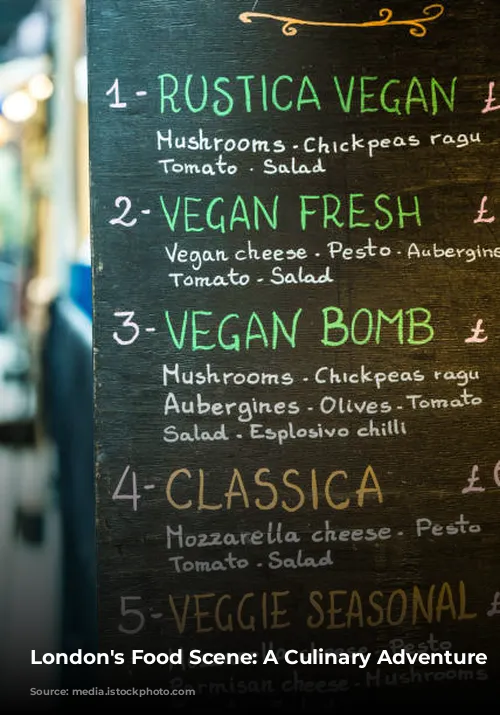 1- RUSTICA VEGAN £
Mushrooms - Chickpeas ragu
Tomato . Salad
2- VEGAN FRESH £
Vegan cheese . Pesto . Aubergine
Tomato - Salad
3- VEGAN BOMB £
Mushrooms . Chickpeas ragu
Aubergines . Olives - Tomato
Salad . Esplosivo chilli
4- CLASSICA £
Mozzarella cheese . Pesto
Tomato . Salad
5- VEGGIE SEASONAL £
cheese . Pesto
London's Food Scene: A Culinary Adventure
Parmisan cheese . Mushrooms
Source: media.istockphoto.com